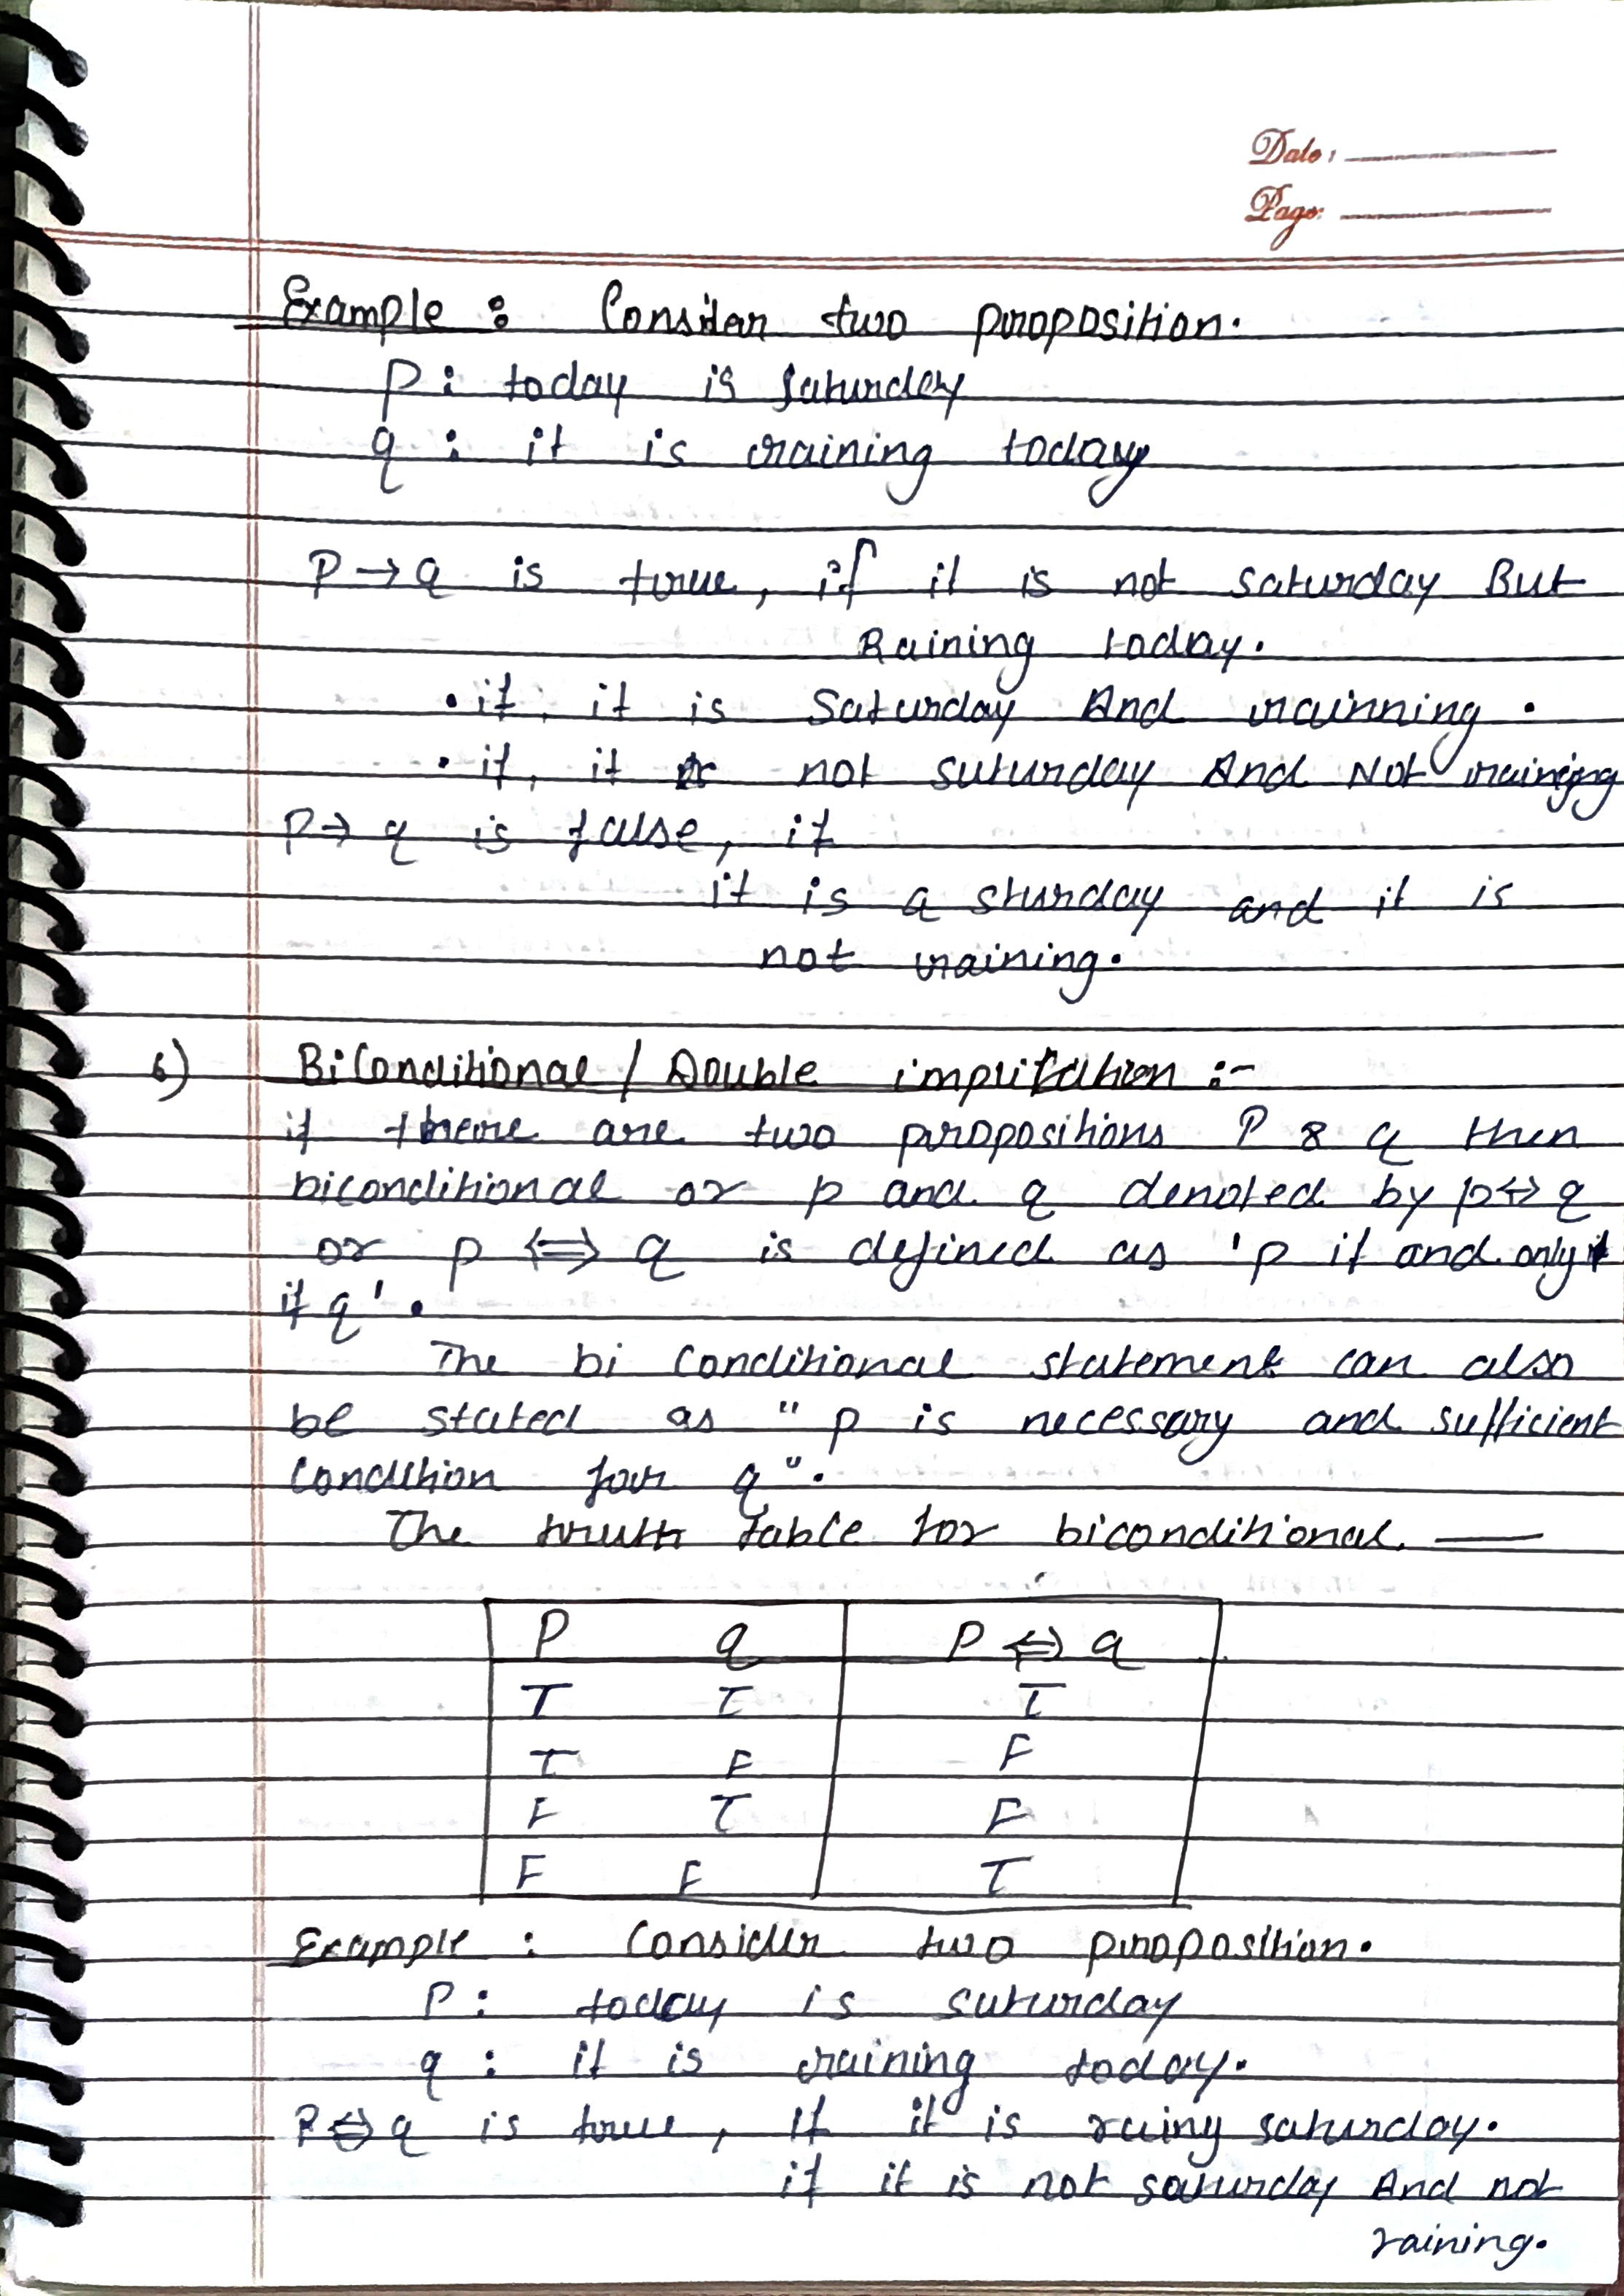 Date:
Page:
Example : Considar two proposition.
P : today is saturday
q : it is raining today
P → q is true, if it is not saturday But
Raining today.
• if, it is Saturday And rainning .
• if, it is not saturday And Not raining
P → q is false, if
it is a sturday and it is
not raining.
6) BiConditional / Double implication :-
if there are two propositions P & q then
biconditional or p and q denoted by p ↔ q
or p ⟺ q is defined as 'p if and only
if q' .
The bi conditional statement can also
be stated as " p is necessary and sufficient
Condition for q ".
The truth table for biconditional. —
P q P ⇔ q
T T T
T F F
F T F
F F T
Example : Consider two proposition.
P : today is saturday
q : it is raining today.
P ⇔ q is true, if it is rainy saturday.
if it is not saturday And not
raining.